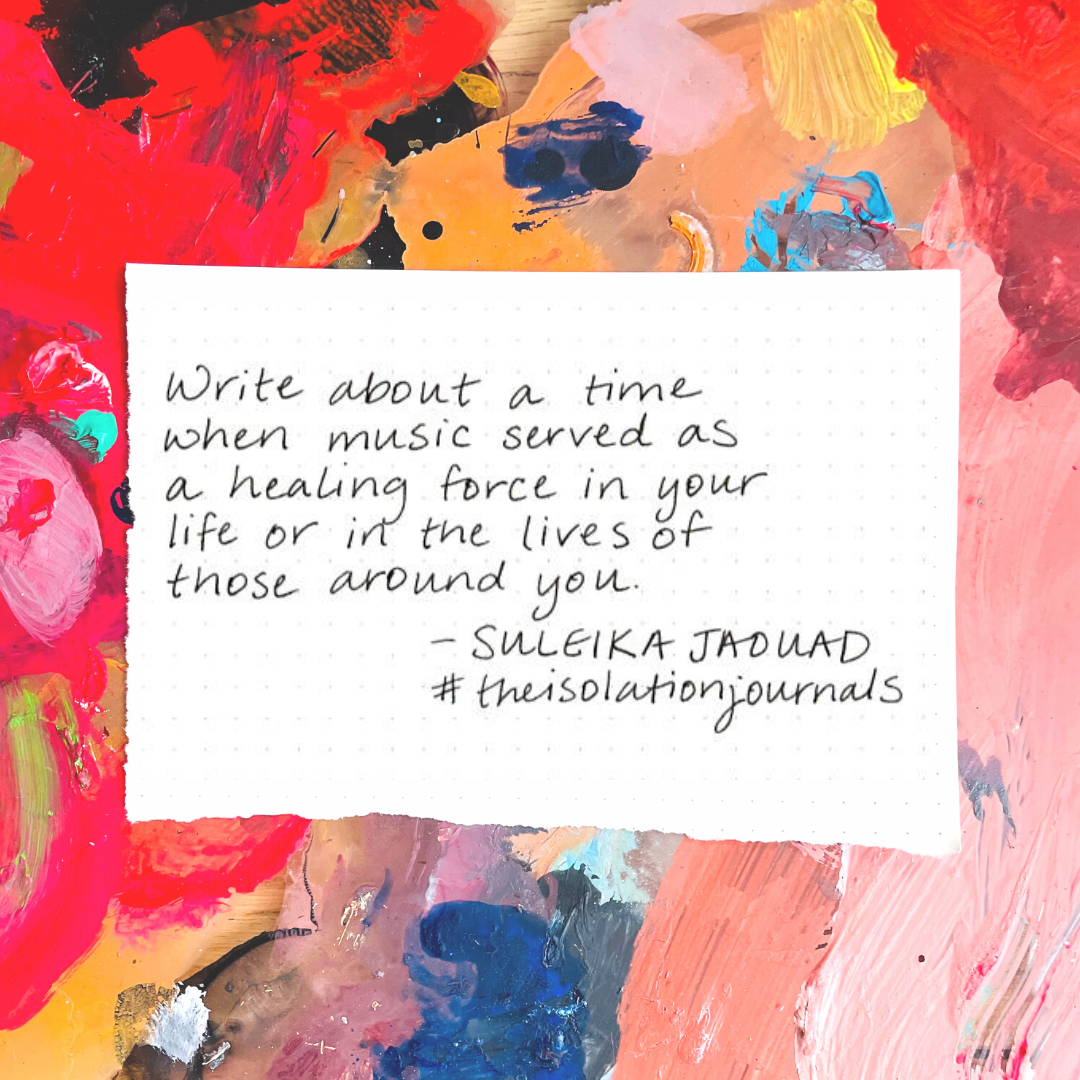 Write about a time
when music served as
a healing force in your
life or in the lives of
those around you.
- SULEIKA JAOUAD
#theisolationjournals